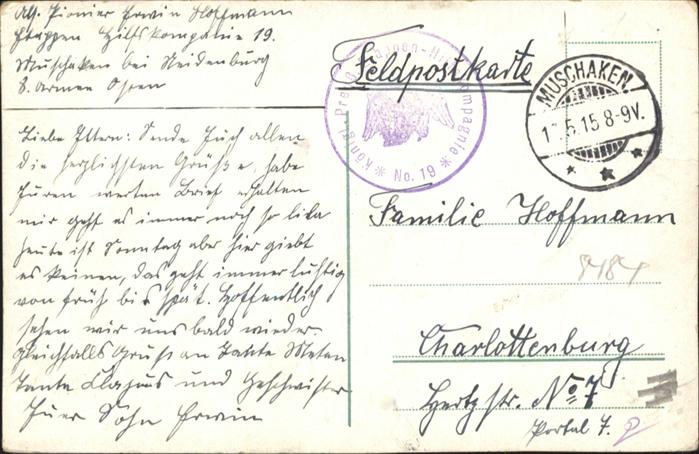 Abs. Pionier Erwin Hoffmann
Etappen Hilfskompanie 19.
Muschaken bei Neidenburg
8. Armee Osten
Feldpostkarte
Königl. Preuss. Kompagnie
No. 19
MUSCHAKEN.
5.15 8-9V.
Liebe Eltern: Sende Euch allen
die herzlichsten Grüße, habe
Euren werten Brief erhalten
mir geht es immer noch so lila
heute ist Sonntag aber hier giebt
es keinen, das geht immer lustig
von früh bis spät. Hoffentlich
sehen wir uns bald wieder.
Gleichfalls Gruß an Tante Meten
Tante und Geschwister
Euer Sohn Erwin
Familie Hoffmann
Charlottenburg
Hertzstr. No 7
Portal 7.